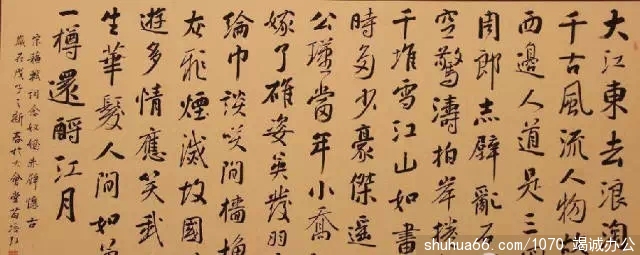 大江東去浪淘
千古風流人物故
西邊人道是三
周郎赤壁亂石
空驚濤拍岸捲
千堆雪江山如畫
時多少豪傑遥
公瑾當年小喬
嫁了雄姿英發羽
綸巾談笑間檣櫓
灰飛煙滅故國
遊多情應笑我
生華髮人間如夢
一樽還酹江月
宋蘇軾詞念奴嬌赤壁懷古
歲在戊子之新春於大會堂苗培红
shuhua66.com/1070 竭诚办公